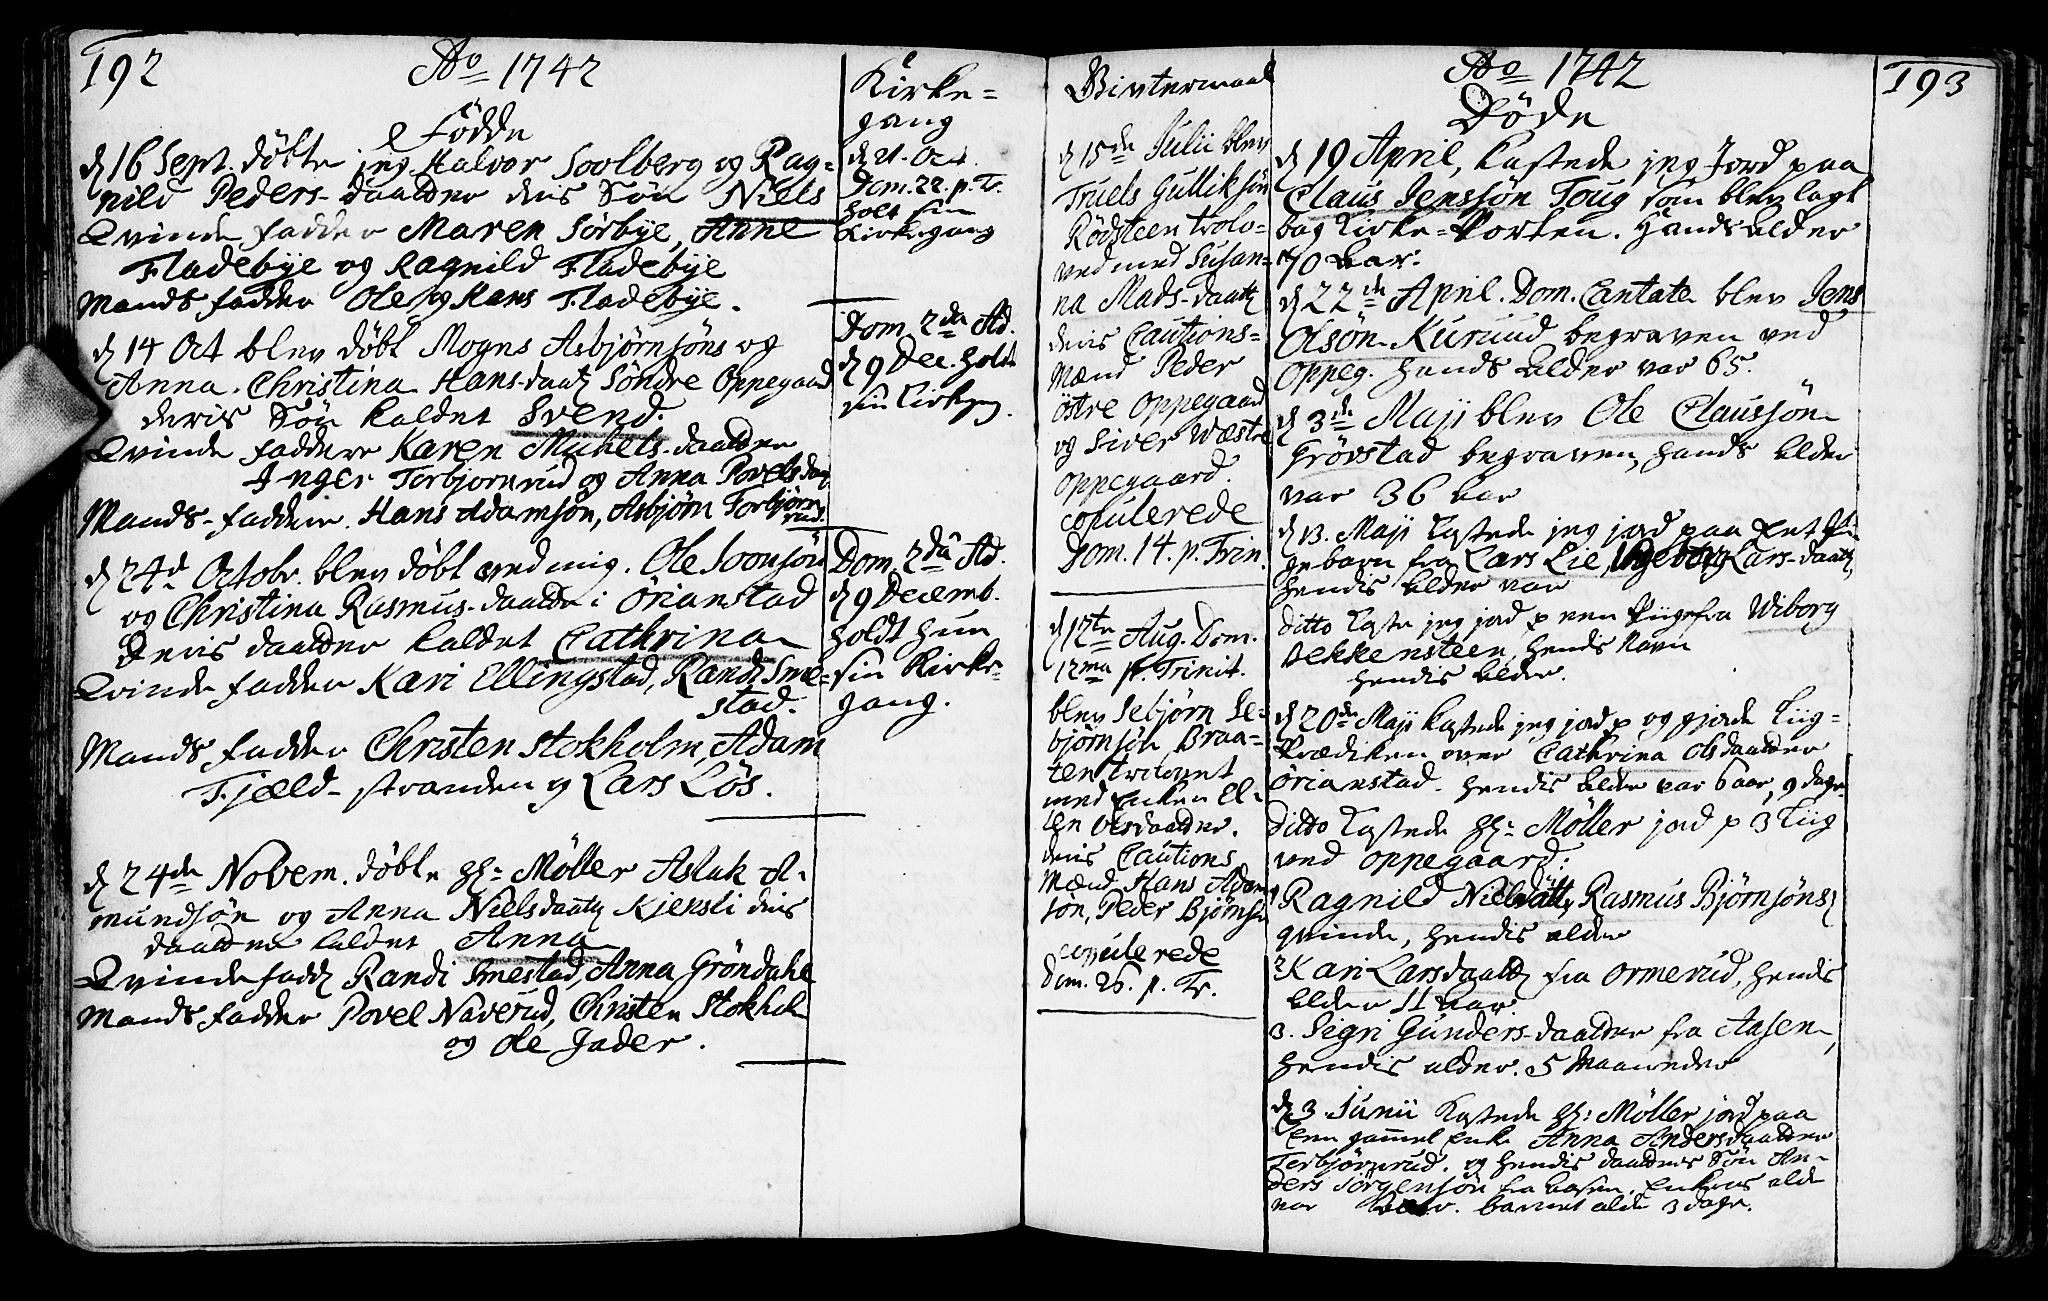 192
Ao 1742
Fødde
d 16 Sept. døbte jeg Halvor Soolberg og Rag-
nild Peders-daatter deris Søn Niels
Qvinde fadder Maren Sørbye, Anne
Fladebye og Ragnild Fladebye
Mands fadder Ole og Hans Fladebye.
d 14 Oct blev døbt Mogns Asbjørnsøns og
Anna Christina Hans-daatr Søndre Oppegaard
deris Søn kaldet Svend.
Qvinde faddere Karen Michels-daatter
Inger Torbjørnrud og Anna Povelsda
Mands-faddere. Hans Adamsøn, Asbjørn Torbjørn
rud.
d 24d Octobr. blev døbt ved mig. Ole Joonsøn
og Christina Rasmus-daatter i Ørianstad
Deris daatter kaldet Cathrina
Qvinde fadder Kari Ellingstad, Randi Sme-
stad.
Mands fadder Christen Stokholm, Adam
Fjeld-stranden og Lars Løs.
d 24de Novem. døbte Hr: Møller Aslak A-
mundsøn og Anna Nielsdaatr Kjensli deris
daatter kaldet Anna
Qvinde fadr Randi Smestad, Anna Grøndahl
Mands fadder Povel Naverud, Christen Stokhol
og Ole Jader.
Kirke-
gang
d 21. Oct.
Dom. 22. p. Tr.
holt sin
Kirkegang
Dom. 2da Ad.
d 9 Dec. holdt
sin Kirkeg.
Dom. 2da Ad.
d 9 Decemb.
holdt hun
sin Kirke-
gang.
d 15de Julii blev
Truels Gulliksøn
Rødsteen trolo-
ved med Susan-
na Mads-daatr
deris Cautions-
Mænd Peder
østre Oppegaard
og Siver Wæstre
Oppegaard.
copulerede
Dom. 14. p. Trin.
d 12te Aug. Dom.
12ma p. Trinit.
blev Sebjørn Se-
bjørnsøn Braa-
ten trolovet
med Enken El-
len Olsdaatter.
deris Cautions
Mænd Hans Adam
søn, Peder Bjørnsøn
copulerede
Dom. 26. p. Tr.
Ao 1742
193
Døde
d 19 April, kastede jeg Jord paa
Claus Jenssøn Toug som blev lagt
bag Kirke-Porten. Hands alder
70 aar.
d 22de April. Dom. Cantate blev Jens
Olsøn Kurud begraven ved
Oppeg. hands alder var 65.
d 3de Maji blev Ole Claussøn
Grøvstad begraven, hands alder
var 36 aar
d 13. Maji kastede jeg jord paa et Pi-
gebarn fra Lars Lie, Ingeborg Lars-daatr,
hendis alder var
ditto kaste jeg jord p een Pige fra Wiborg
Bekkensteen, hends Navn
hendis alder.
d 20de Maji kastede jeg jord p og gjorde Liig-
Prædiken over Cathrina Olsdaatter
Ørianstad. hendis alder var 6 aar, 9 dage.
Ditto kastede Hr: Møller jord p 3 Liig
ved Oppegaard:
Ragnild Nielsdatr, Rasmus Bjørnsøns
qvinde, hendis alder
2 Kari Larsdaatr fra Ormerud, hendis
alder 11 aar.
3. Segri Gunders-daatter fra Aasen,
hendis alder. 5 Maaneder
d 3 Junii kastede Hr: Møller jord paa
een gammel Enke Anna Andersdaatter
Torbjørnrud. og hendis daatters Søn An-
ders Jørgensøn fra Aasen. Enkens alde
var aar. barnets alde 3 dage.